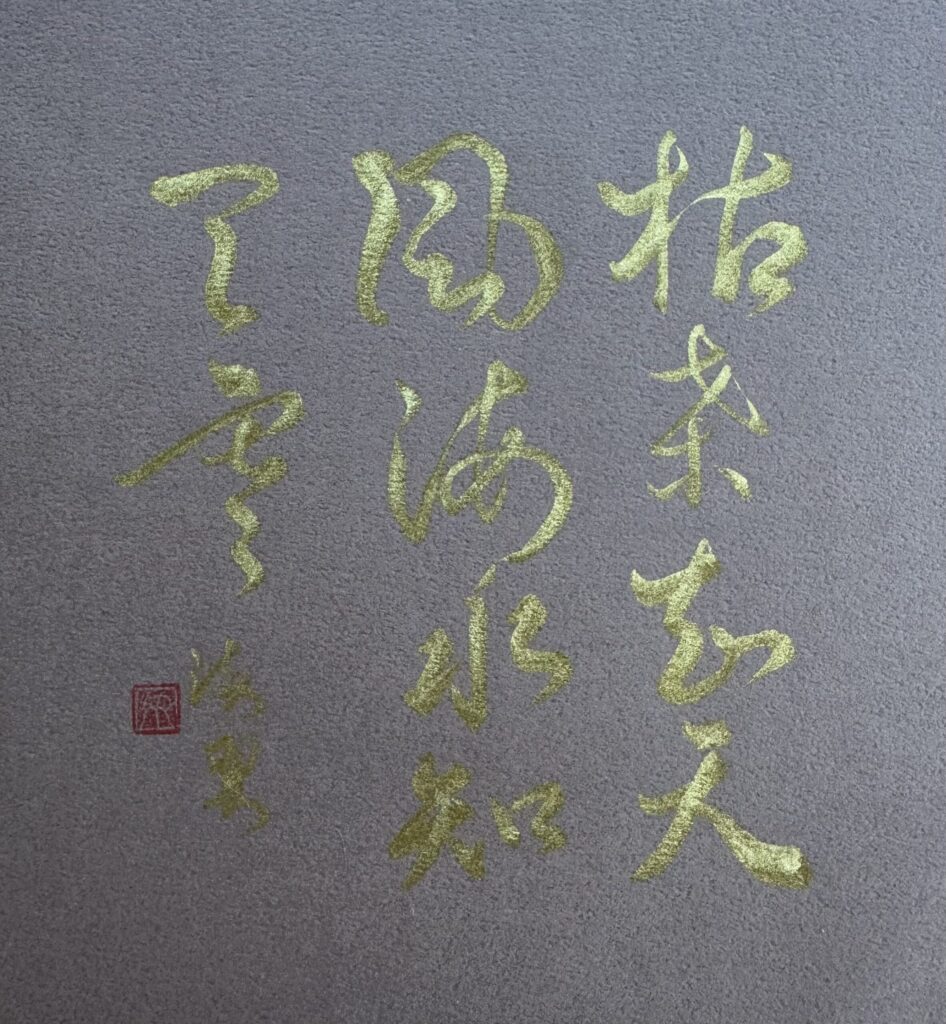 枯桑知天
風海水知
天寒